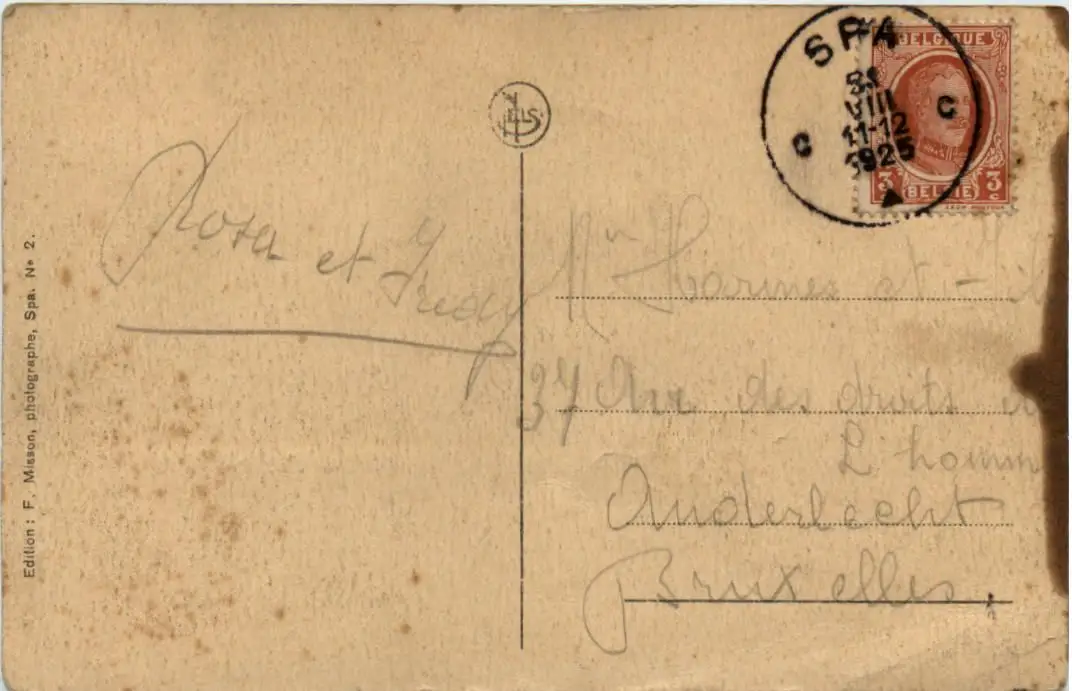 SPA
VIII
11-12
1925
C C
BELGIQUE
3 BELGIE 3
c
NELS
Rosa et Fredy
Mr Harmes et
37 Av des droits de
L homm
Anderlecht
Bruxelles
Edition : F. Misson, photographe, Spa. No 2.